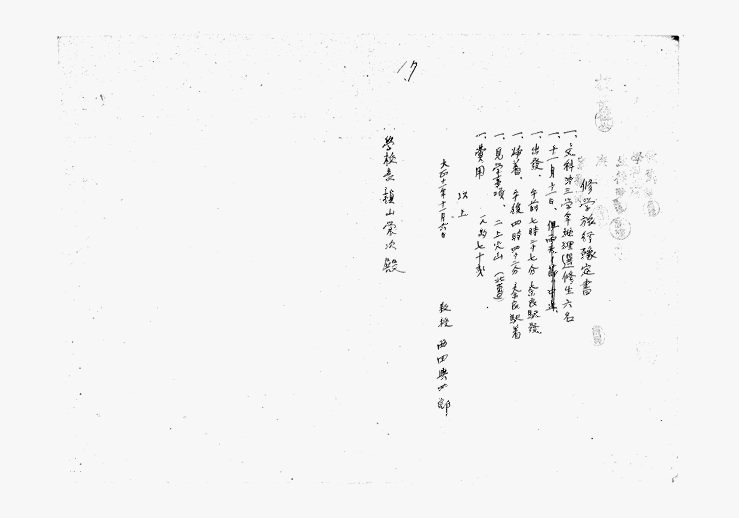 17
修学旅行豫定書
一、文科第三学年地理選修生六名
一、十一月十一日、
一、出發、午前七時二十七分 奈良駅發
一、帰着、午後四時四十二分 奈良駅着
一、見学事項、二上火山
一、費用 一人約七十銭
以上
大正十一年十一月六日
教授 西田與四郎
学校長 槇山榮次殿